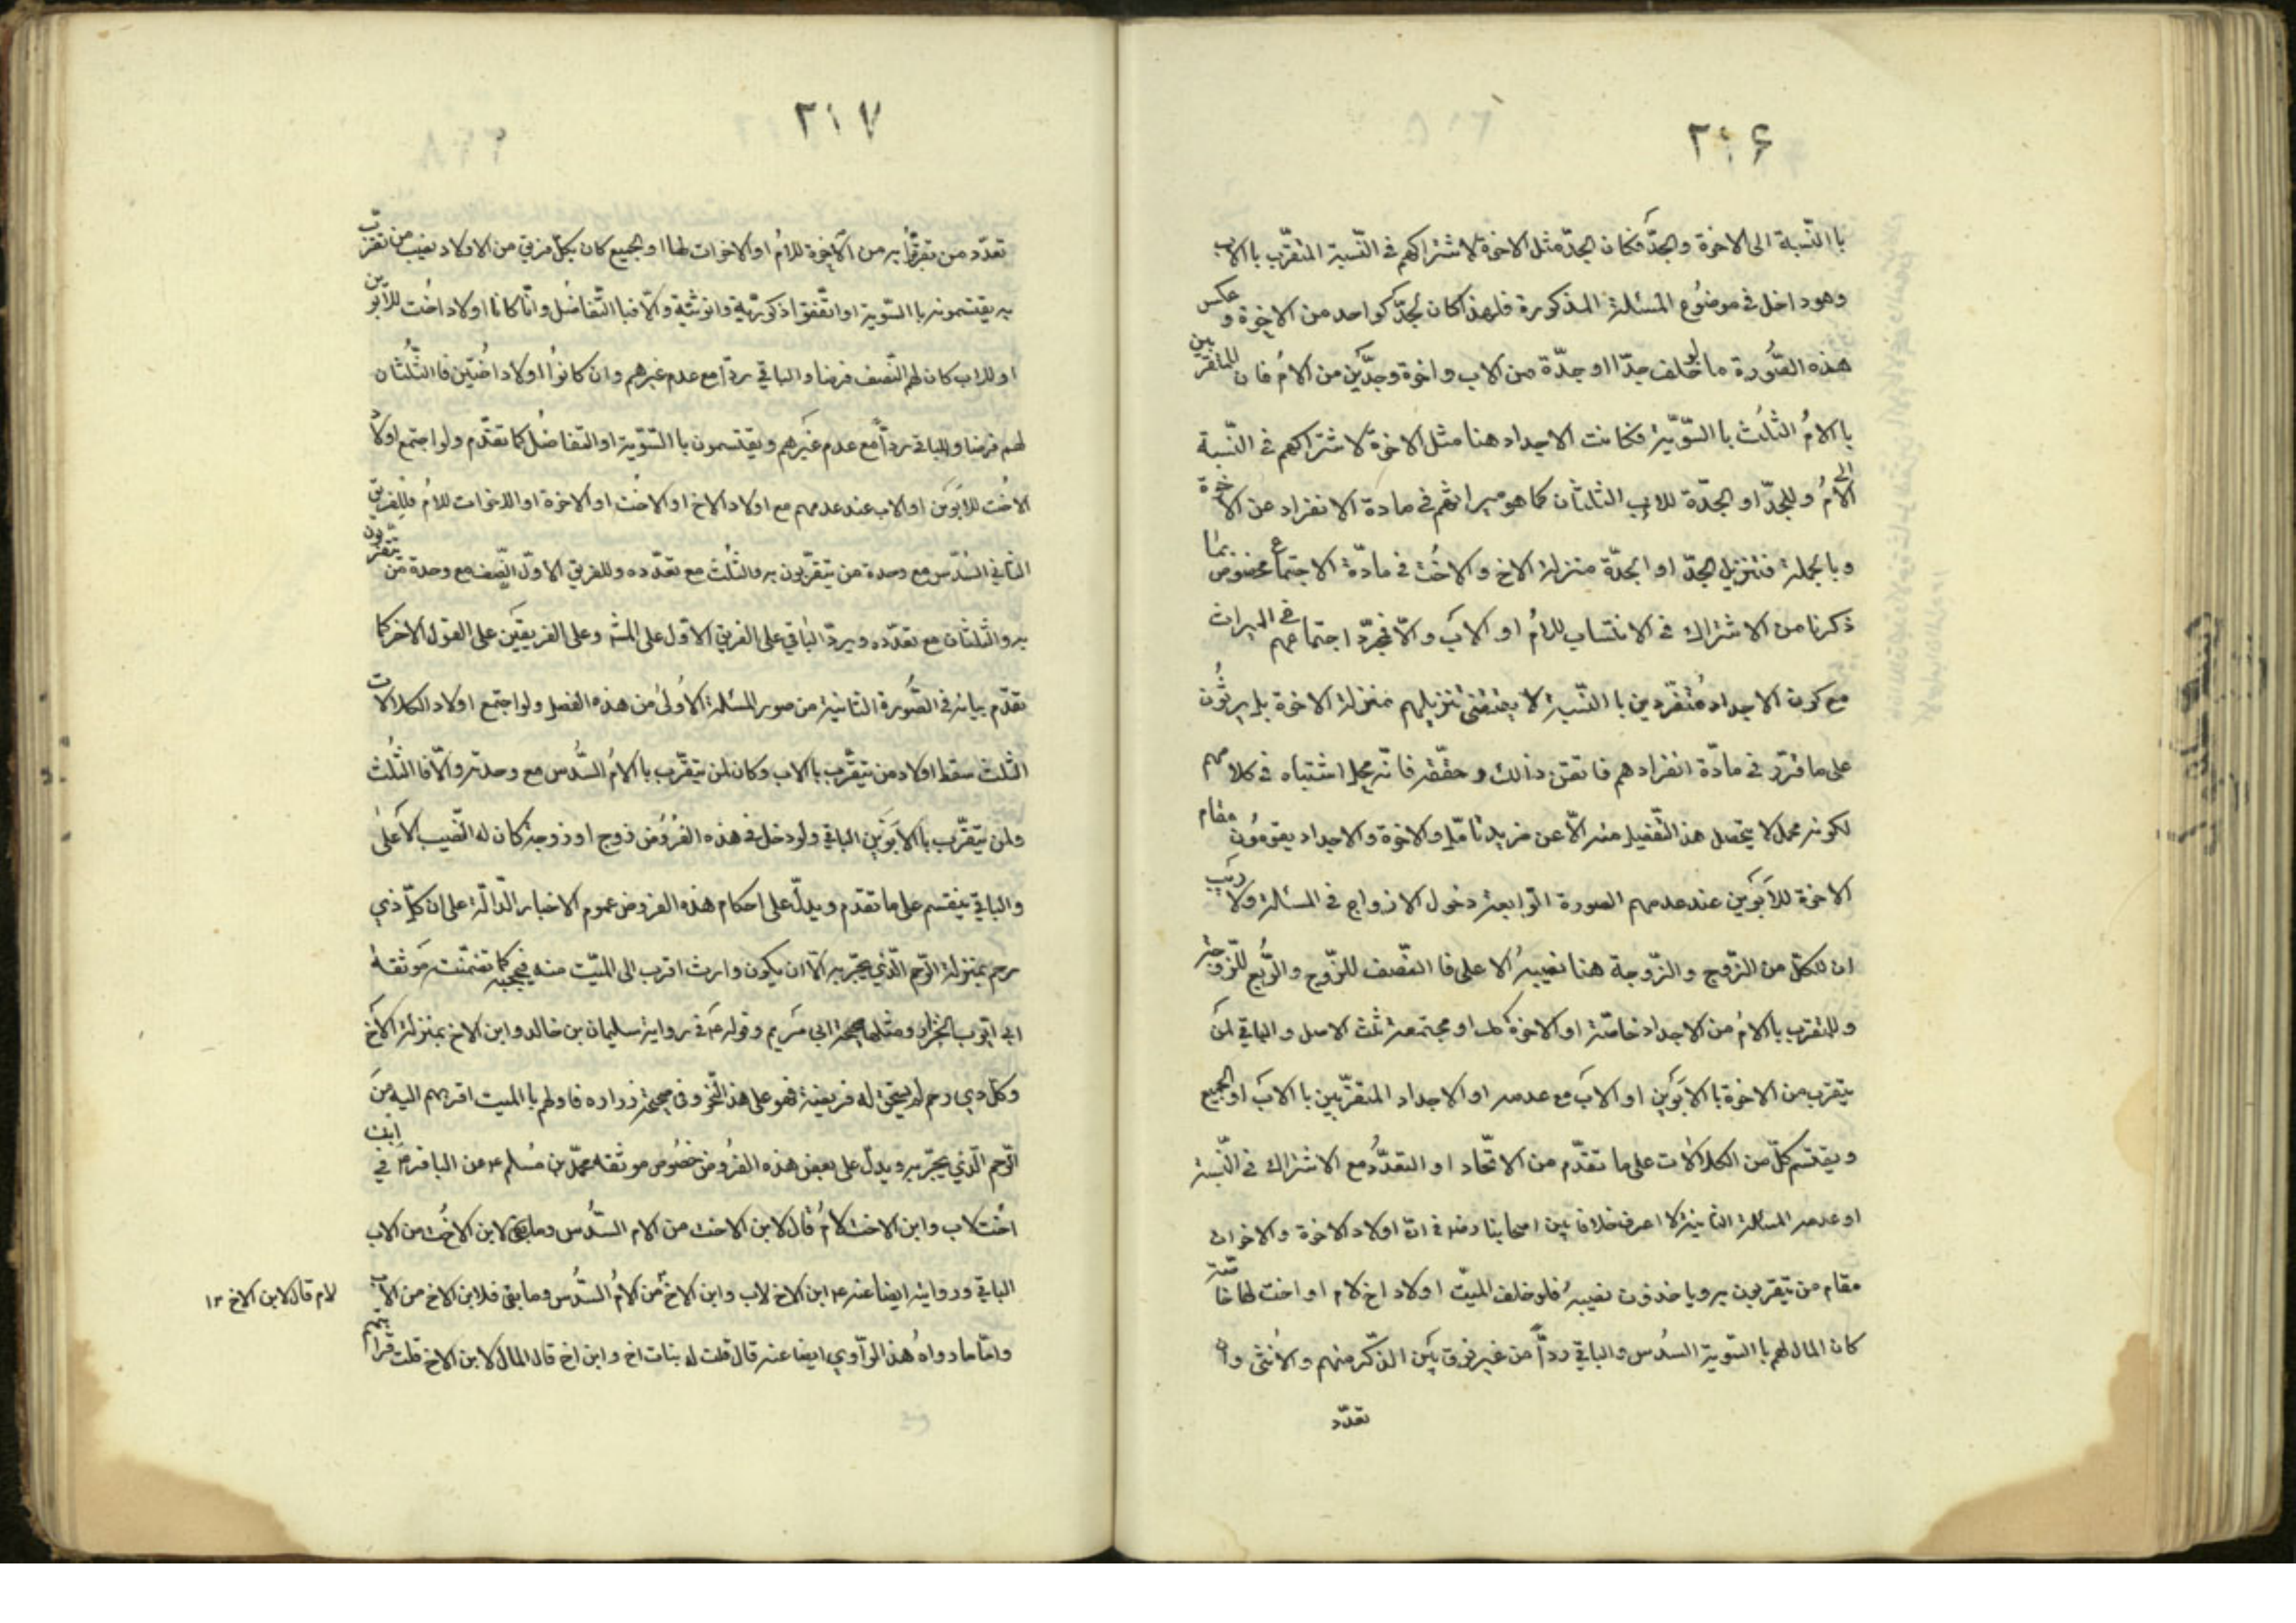 ٢١۶
با النّسبة الى الاخوة والجدّ فكان الجدّ مثل الاخوة لاشتراكهم فى النّسبة المتقرّب با الاب
وهو داخل فى موضوع المسئلة المذكورة فلهذا كان لجدّ كواحد من الاخوة و عكس
هذه الصّورة ما لو خلف جدّا او جدّة من الاب واخوة وجدّين من الامّ فان للمتقربين
با الامّ الثلث با السّويّة فكانت الاجداد هنا مثل الاخوة لاشتراكهم فى النّسبة
الى الامّ وللجدّ او الجدّة للاب الثلثان كما هو ميراثهم فى مادة الانفراد عن الاخوة
وبا الجملة فتنزيل الجدّ او الجدّة منزلة الاخ والاخت فى مادّة الاجتماع مخصوص بما
ذكرنا من الاشتراك فى الانتساب للامّ او الاب والّا فمجرّد اجتماعهم فى الميراث
مع كون الاجداد متفرّدين با النّسبة لا يقتضى تنزيلهم بمنزلة الاخوة بل يرثون
على ما قرّر فى مادّة انفرادهم فاتقن ذالك وحقّقه فانّه محل اشتباه فى كلامهم
لكونه مجملا لا يتحصل هذا التّفصيل منه الّا عن مزيد تامّل والاخوة والاجداد يقومون مقام
الاخوة للابوين عند عدمهم الصورة الرّابعة دخول الازواج فى المسئلة ولا ريب
ان لكلّ من الزّوج والزّوجة هنا نصيبه الاعلى فا النّصف للزّوج والرّبع للزّوجة
وللمتقرب با الامّ من الاجداد خاصّة او الاخوة كك او مجتمعة ثلث الاصل والباقى لمن
يتقرب من الاخوة با الابوين او الاب مع عدمه او الاجداد المتقرّبين با الاب او الجميع
ويقتسم كلّ من الكلالات على ما تقدّم من الاتّحاد او التعدّد مع الاشتراك فى النّسبة
او عدمه المسئلة الثانية لا اعرف خلافا بين اصحابنا رضه فى انّ اولاد الاخوة والاخوات
مقام من يتقربون به وياخذون نصيبه فلو خلف الميّت اولاد اخ لام او اخت لها خاصّة
كان المال لهم با السّوية السّدس والباقى ردّا من غير فرق بين الذّكر منهم والانثى وان
تعدّد
٢١٧
تعدّد من تقربوا به من الاخوة للامّ او الاخوات لها او الجميع كان لكلّ فريق من الاولاد نصيب من تقرّب
به يقتسمونه با السّوية او اتّفقوا ذكوريّة وانوثيّة والّا فبا التّفاضل وانّا كانا اولاد اخت للابوين
او للاب كان لهم النّصف فرضا والباقى ردّا مع عدم غيرهم وان كانوا اولاد اختين فا الثّلثان
لهم فرضا والباقى ردّا مع عدم غيرهم ويقتسمون با السّويّة او التفاضل كما تقدّم ولو اجتمع اولاد
الاخت للابوين او الاب عند عدمهم مع اولاد الاخ او الاخت او الاخوة او الاخوات للامّ فللفريق
الثانى السّدس مع وحدة من يتقرّبون به والثلث مع تعدّده وللفريق الاوّل النّصف مع وحدة من يتقرّبون
به والثّلثان مع تعدّده ويردّ الباقى على الفريق الاوّل على المش وعلى الفريقين على القول الاخر كما
تقدّم بيانه فى الصّورة الثانية من صور المسئلة الاولى من هذه الفصل ولو اجتمع اولاد الكلالات
الثلث سقط اولاد من يتقرّب با الاب وكان لمن يتقرّب با الامّ السّدس مع وحدته والّا فا الثلث
ولمن يتقرّب با الابوين الباقى ولو دخل فى هذه الفروض زوج او زوجة كان له النّصيب الاعلى
والباقى ينقسم على ما تقدم ويدلّ على احكام هذه الفروض عموم الاخبار الدّالّة على ان كلّ ذي
رحم بمنزلة الرّحم الّذى يجرّ به الّا ان يكون وارث اقرب الى الميّت منه فيحجبه كما تضمّنت موثقة
ابى ايّوب الخزاز ومثلها صحيحة ابى مريم وقوله ع فى رواية سليمان بن خالد وابن الاخ بمنزلة الاخ
وكلّ ذي رحم لم يستحق له فريضة فهو على هذا النّحو وفى صحيحة زراره فاولهم با الميت اقربهم اليه من
الرّحم الّذى يجرّ به ويدلّ على بعض هذه الفروض خصوص موثقه محمّد بن مسلم عن الباقر ع فى ابن
اخت لاب وابن الاخت لامّ قال لابن الاخت من الام السّدس وما بقى لابن الاخت من الاب
الباقى ورواية ايضا عنه ع ابن الاخ لاب وابن الاخ من الامّ السّدس وما بقى فلابن الاخ من الاب
لام قال لابن الاخ ١٢
وامّا ما رواه هذا الرّاوي ايضا عنه قال قلت له بنات اخ وابن اخ قال المال لابن الاخ قلت قرابتهم